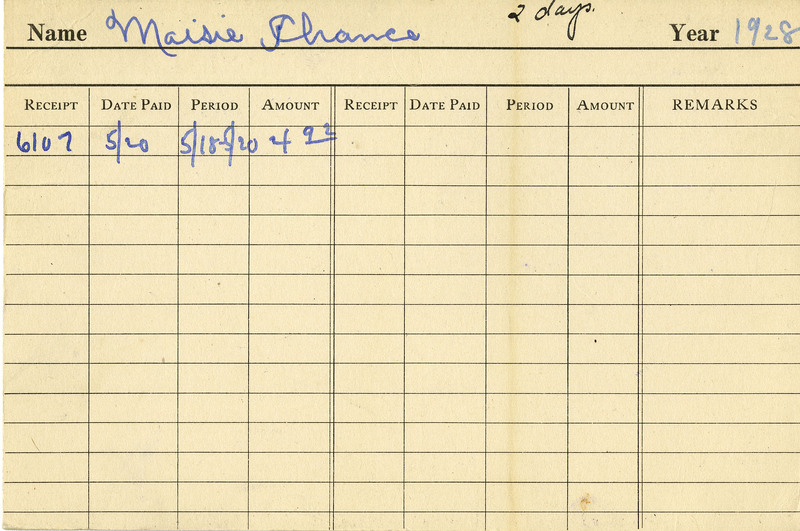 2 days.
Name Maisie Chance Year 1928
RECEIPT DATE PAID PERIOD AMOUNT RECEIPT DATE PAID PERIOD AMOUNT REMARKS
6107 5/20 5/18-5/20 4 92